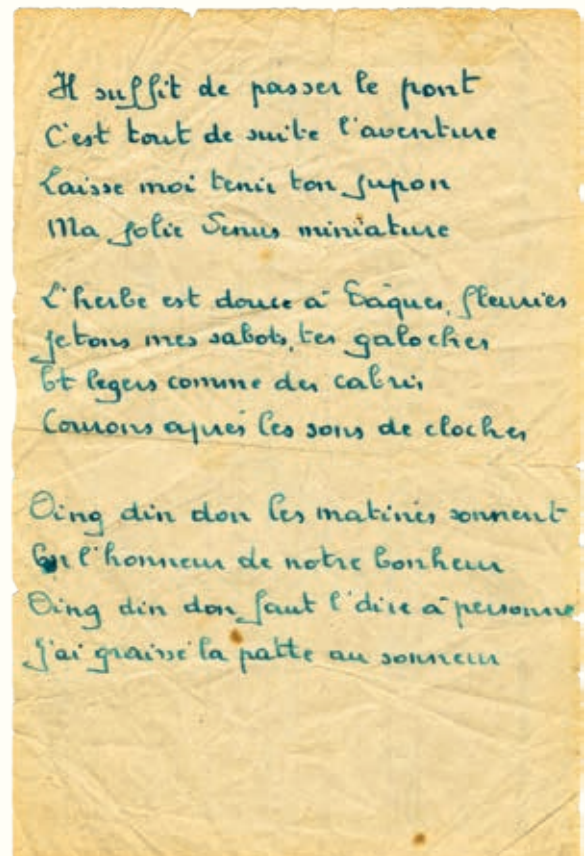 Il suffit de passer le pont
C'est tout de suite l'aventure
Laisse moi tenir ton jupon
Ma jolie Venus miniature
L'herbe est douce à Pâques fleuries
Jetons mes sabots, tes galoches
Et legers comme des cabris
Courons après les sons de cloches
Ding din don les matines sonnent
En l'honneur de notre bonheur
Ding din don faut l'dire à personne
J'ai graissé la patte au sonneur